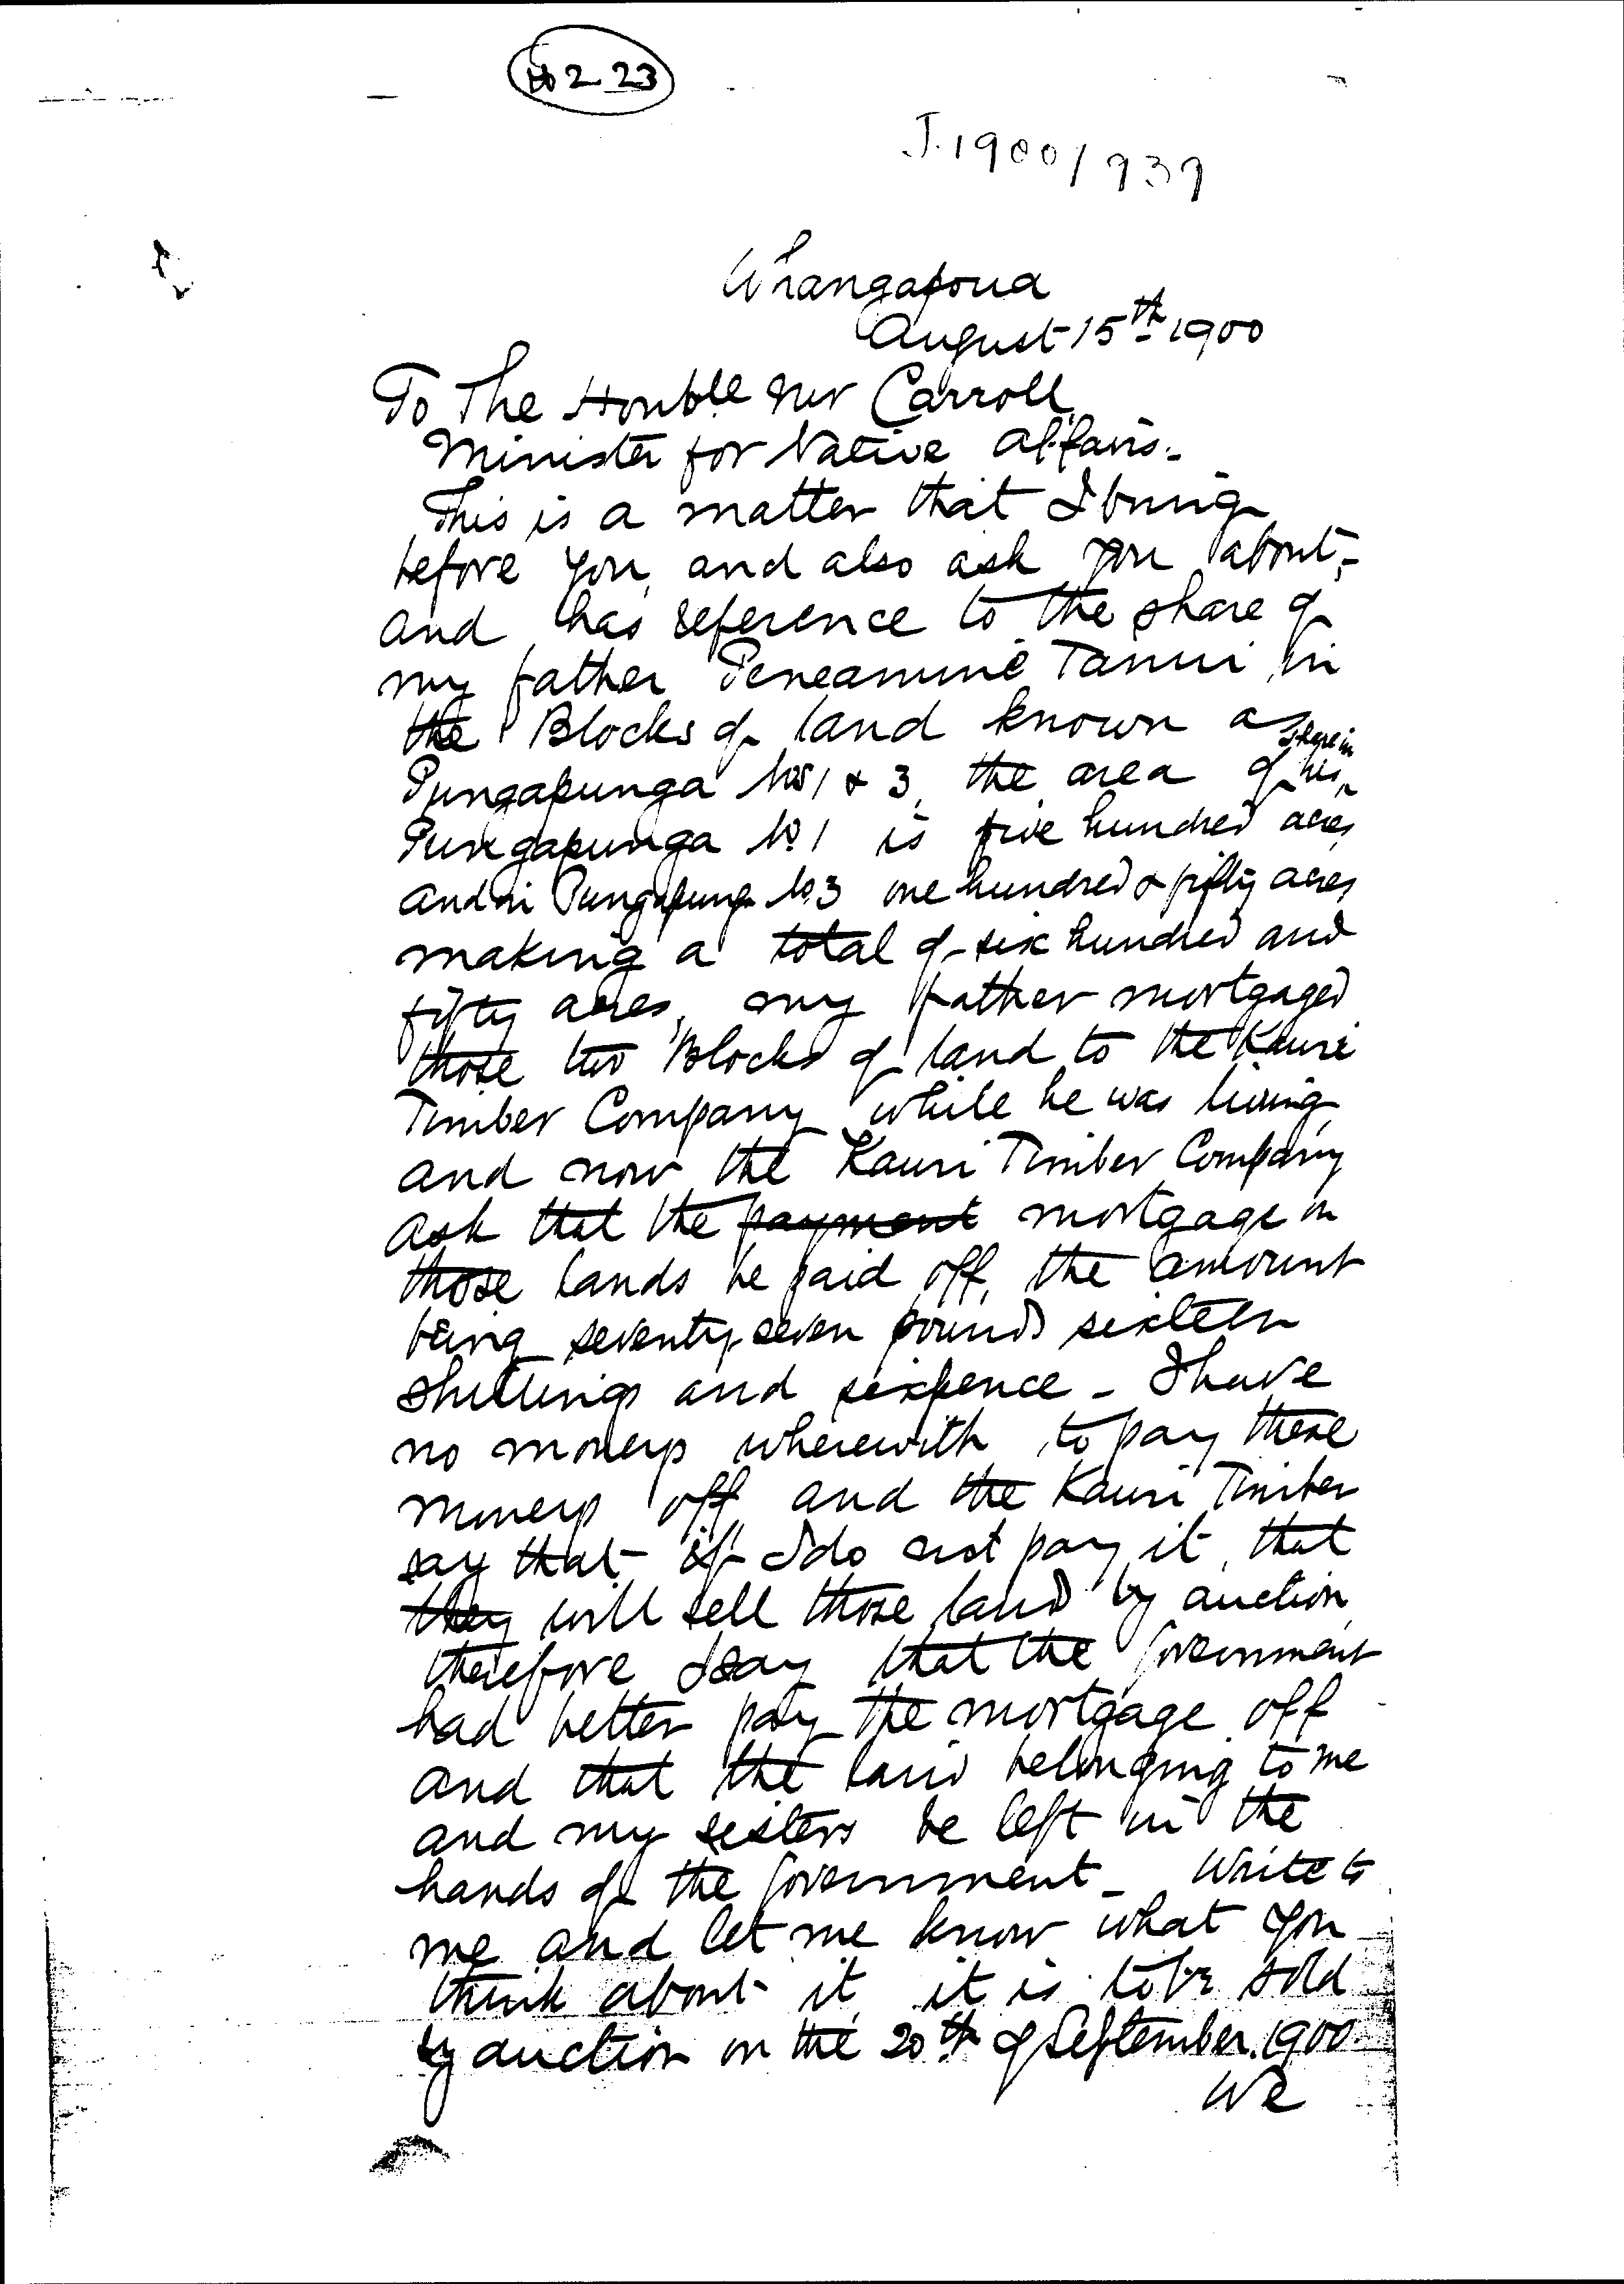 2.23
J.1900/939
Whangapoua
August 15th 1900
To The Honble Mr Carroll
Minister for Native Affairs.
This is a matter that I bring
before you, and also ask you about,
and has reference to the share of
my father Peneamine Tanui in
the Blocks of land known as
Pungapunga Nos 1 & 3, the area of his share in
Pungapunga No. 1 is five hundred acres
and in Pungapunga No. 3 one hundred & fifty acres
making a total of six hundred and
fifty acres, my father mortgaged
those two Blocks of land to the Kauri
Timber Company while he was living,
and now the Kauri Timber Company
ask that the payment mortgage on
those lands be paid off, the amount
being seventy seven pounds sixteen
shillings and sixpence - I have
no moneys wherewith to pay these
moneys off and the Kauri Timber
say that if I do not pay it, that
they will sell those land by auction
therefore I say that the Government
had better pay the mortgage off
and that the land belonging to me
and my sisters be left in the
hands of the Government - Write to
me and let me know what you
think about it, it is to be sold
by auction on the 20th of September. 1900
We